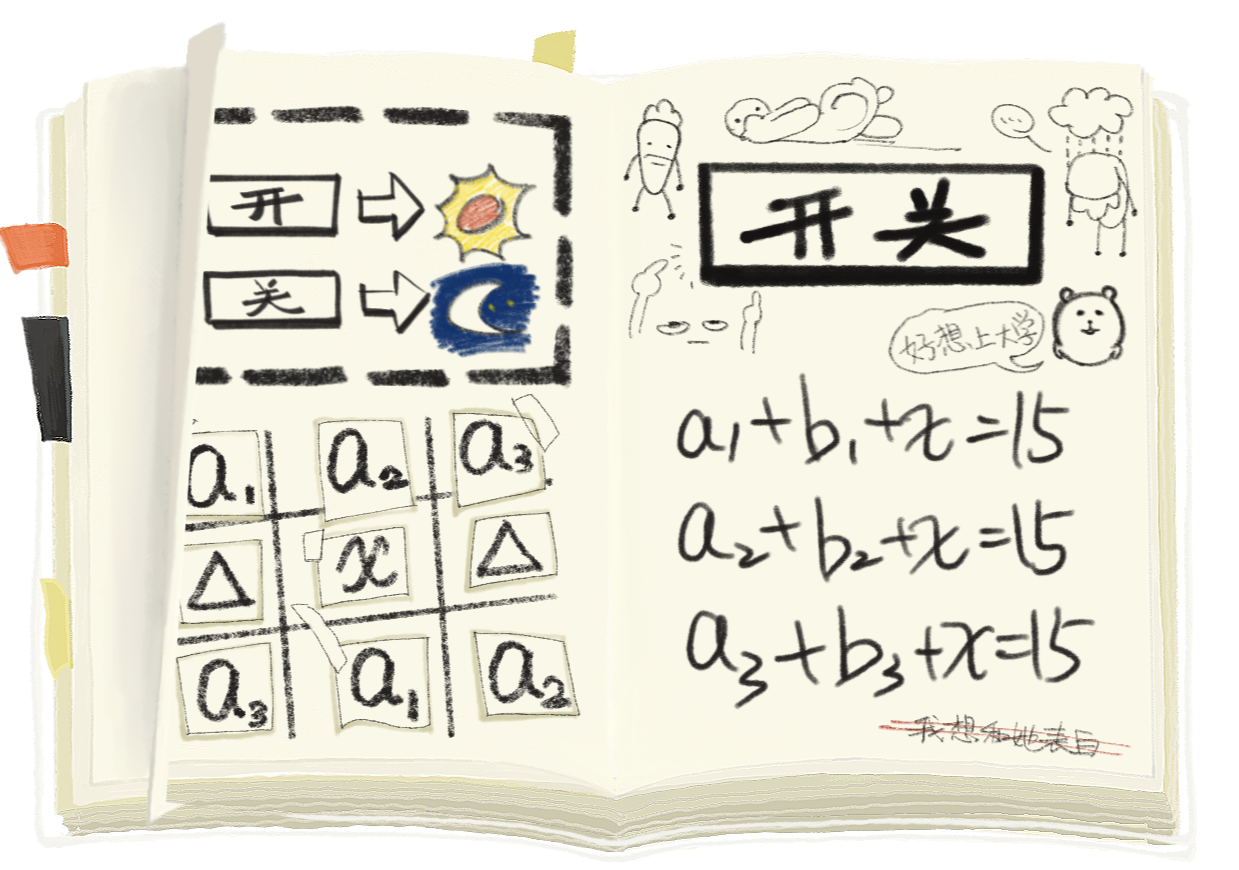 开
关
a₁ a₂ a₃
△ x △
a₃ a₁ a₂
...
开关
好想上大学
a₁+b₁+x=15
a₂+b₂+x=15
a₃+b₃+x=15
我想和她表白